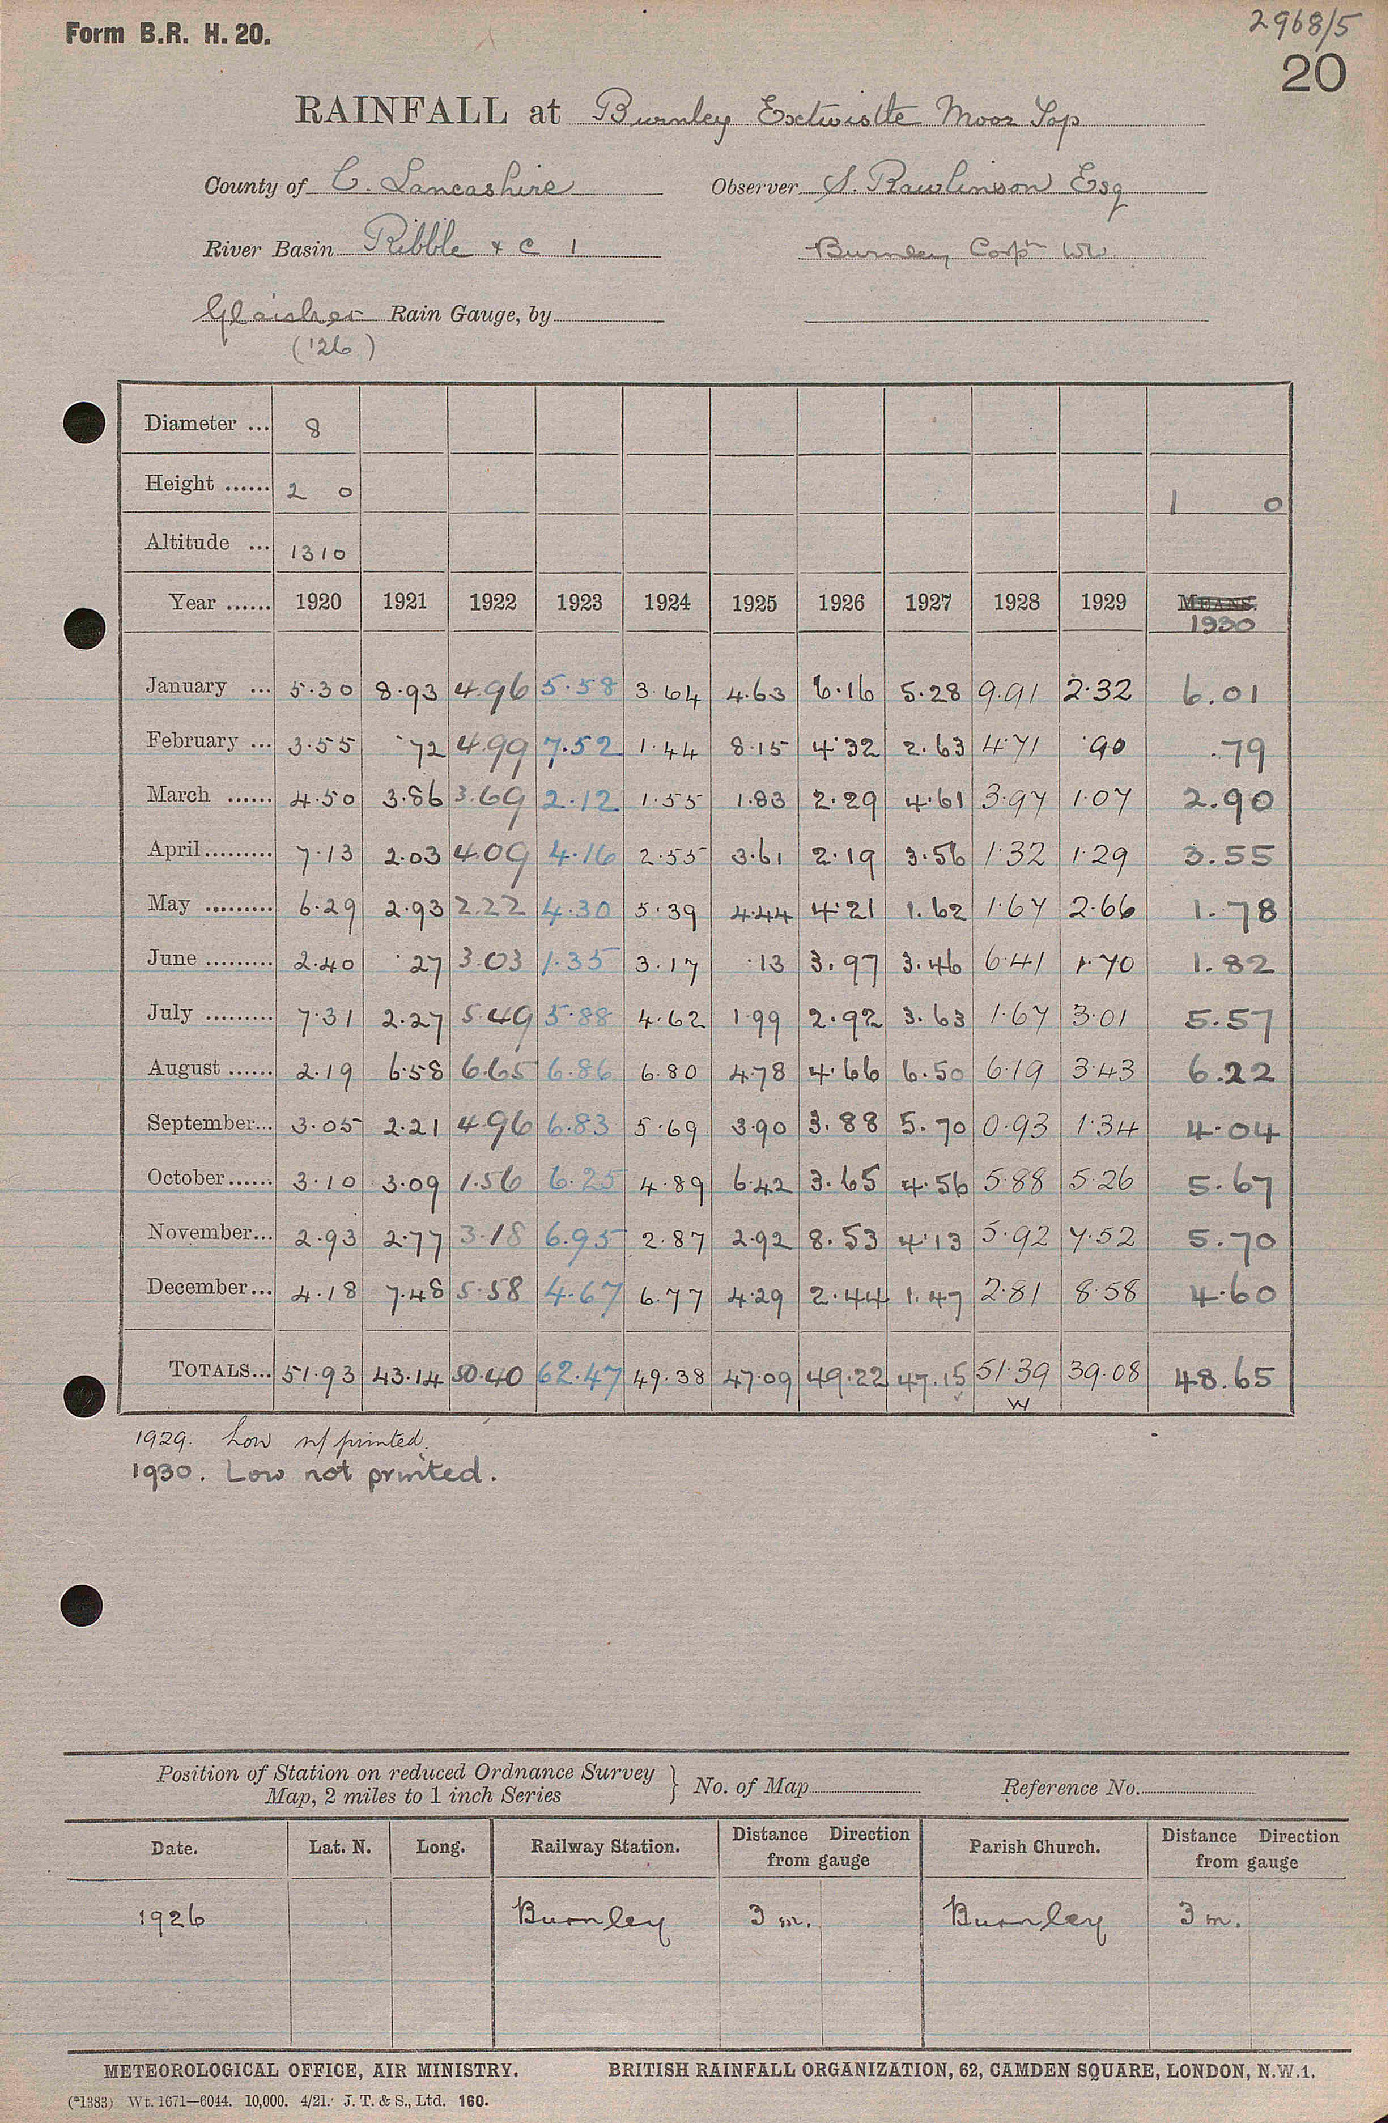 Form B.R. H. 20.
2968/5
20
RAINFALL at Burnley Extwistle Moor Top
County of C. Lancashire Observer S. Rawlinson Esq
River Basin Ribble & C 1 Burnley Corpn WW.
Glaisher Rain Gauge, by
('26)
Diameter ... 8
Height ...... 2 0 1 0
Altitude ... 1310
Year ...... 1920 1921 1922 1923 1924 1925 1926 1927 1928 1929 MEANS.
1930
January ... 5.30 8.93 4.96 5.58 3.64 4.63 6.16 5.28 9.91 2.32 6.01
February ... 3.55 .72 4.99 7.52 1.44 8.15 4.32 2.63 4.71 .90 .79
March ...... 4.50 3.86 3.69 2.12 1.55 1.83 2.29 4.61 3.97 1.07 2.90
April......... 7.13 2.03 4.09 4.16 2.55 3.61 2.19 3.56 1.32 1.29 3.55
May ......... 6.29 2.93 2.22 4.30 5.39 4.44 4.21 1.62 1.67 2.66 1.78
June ......... 2.40 .27 3.03 1.35 3.17 .13 3.97 3.46 6.41 1.70 1.82
July ......... 7.31 2.27 5.49 5.88 4.62 1.99 2.92 3.63 1.67 3.01 5.57
August ...... 2.19 6.58 6.65 6.86 6.80 4.78 4.66 6.50 6.19 3.43 6.22
September... 3.05 2.21 4.96 6.83 5.69 3.90 3.88 5.70 0.93 1.34 4.04
October...... 3.10 3.09 1.56 6.25 4.89 6.42 3.65 4.56 5.88 5.26 5.67
November... 2.93 2.77 3.18 6.95 2.87 2.92 8.53 4.13 5.92 7.52 5.70
December... 4.18 7.48 5.58 4.67 6.77 4.29 2.44 1.47 2.81 8.58 4.60
TOTALS... 51.93 43.14 50.40 62.47 49.38 47.09 49.22 47.15 51.39 39.08 48.65
W
1929. Low n/ printed.
1930. Low not printed.
Position of Station on reduced Ordnance Survey
Map, 2 miles to 1 inch Series } No. of Map Reference No.
Date. Lat. N. Long. Railway Station. Distance Direction from gauge Parish Church. Distance Direction from gauge
1926 Burnley 3 m. Burnley 3 m.
METEOROLOGICAL OFFICE, AIR MINISTRY. BRITISH RAINFALL ORGANIZATION, 62, CAMDEN SQUARE, LONDON, N.W.1.
(*1383) Wt. 1671—6044. 10,000. 4/21. J. T. & S., Ltd. 160.